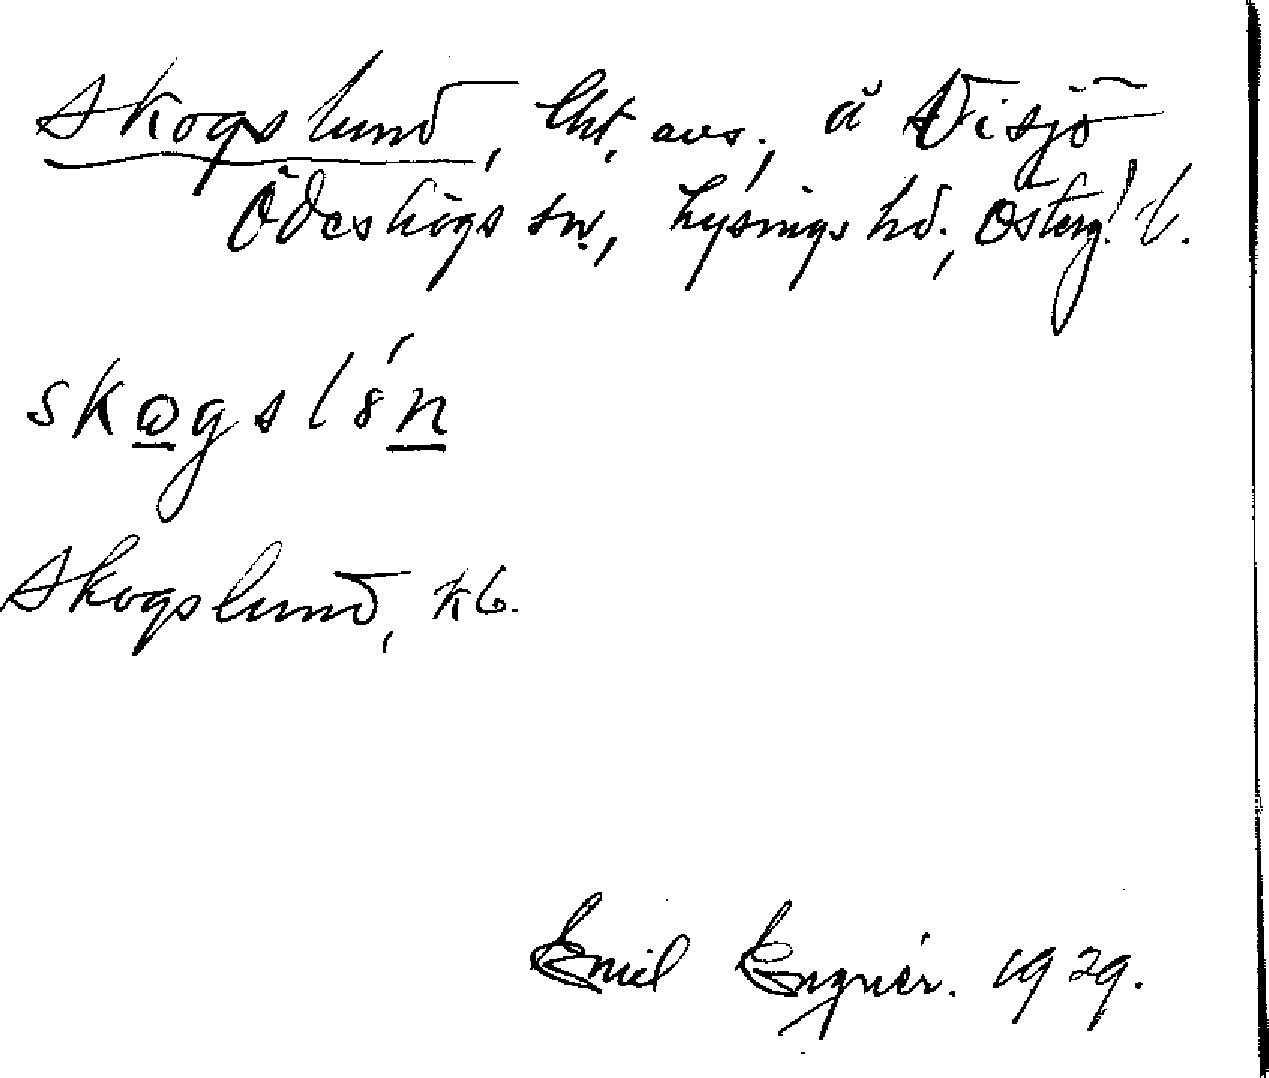 Skogslund, lht. avs., å Visjö
Ödeshögs sn, Lysings hd., Österg. l.
skogslȣ́n
Skogslund, kb.
Emil Engnér. 1929.